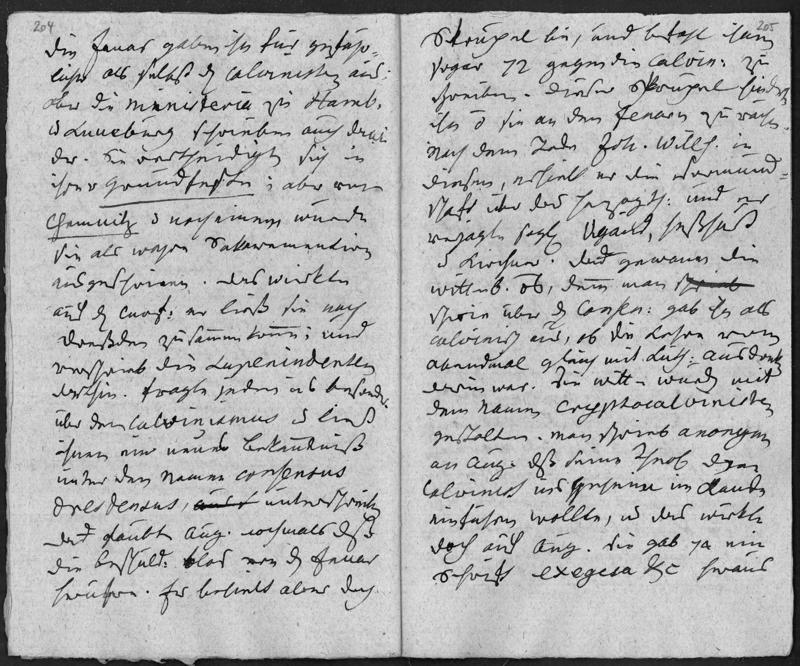 204
die Jenaer gaben sie für gefähr-
licher als selbst d Calvinisten aus:
aber die ministeria zu Hamb.
u Luneburg schrieben auch
der. Sie vertheidigten sich in
ihrer Grundfeste; aber von
Chemnitz u wurden
sie als wahre Sakramentirer
ausgeschrieen. das wirkte
auf d Curf: er ließ sie nach
Dresden zusammenkom; und
verschrieb die Superindenten
dorthin. fragte jeden
über den Calvinismus u ließ
ihnen ein neues Bekäntniß
unter dem Namen consensus
dresdensis, unterschreiben
da glaubte Aug. nochmals dß
die beschuld: blos von d Jenaer
. Er behielt aber doch
205
Skrupel bei, und befahl ihnen
sogar 72 gegen die Calvin: zu
schreiben. dieser Skrupel
ihn sie an den Jenaern zu rächen.
Nach dem Tode Joh. Wilh. in
diesem, erhielt er die Vormund-
schaft über das Herzogth: und er
verjagte sogl Wigand, Heßhuß
u Kirchner. da gewannen die
wittenb. , denn man
schrie über d Consens: gab ihn als
calvinisch aus, ob die Lehre vom
Abendmal gleich mit Luth: ausdrük
darin war. die witt- wurden mit
dem Namen Cryptocalvinisten
gescholten. man schrieb anonym
an Aug: dß seine Theol den
Calvinismus im Lande
einführen wollte, u das wirkte
doch auf Aug. Sie gab ja eine
Schrift exegesa &c heraus